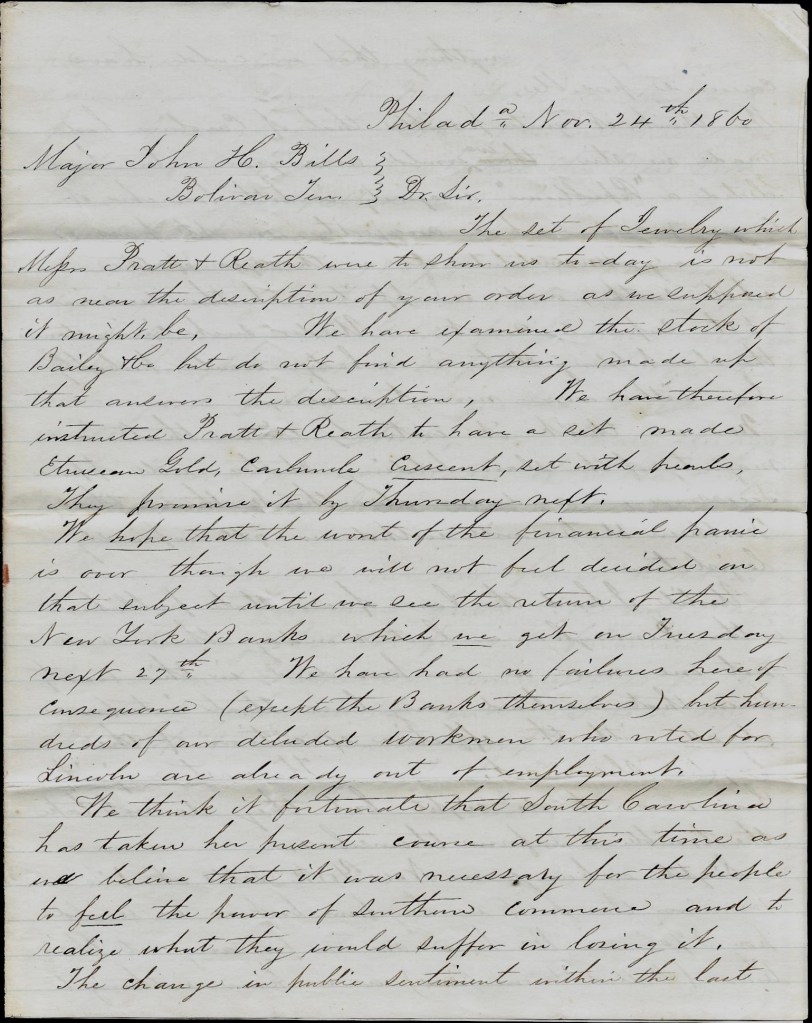 Philad a Nov. 24th 1860
Major John H. Bills }
Bolivar Ten. } Dr. Sir,
The set of Jewelry which
Messrs Pratt & Reath were to show us to-day is not
as near the description of your order as we supposed
it might be, We have examined the stock of
Bailey & Co but do not find anything made up
that answers the description, We have therefore
instructed Pratt & Reath to have a set made
Etruscan Gold, Carbuncle Crescent, set with pearls,
They promise it by Thursday next.
We hope that the worst of the financial panic
is over though we will not feel decided on
that subject until we see the return of the
New York Banks which we get on Tuesday
next 27th We have had no failures here of
consequence (except the Banks themselves) but hun-
dreds of our deluded workmen who voted for
Lincoln are already out of employment.
We think it fortunate that South Carolina
has taken her present course at this time as
we believe that it was necessary for the people
to feel the power of southern commerce and to
realize what they would suffer in losing it.
The change in public sentiment within the last